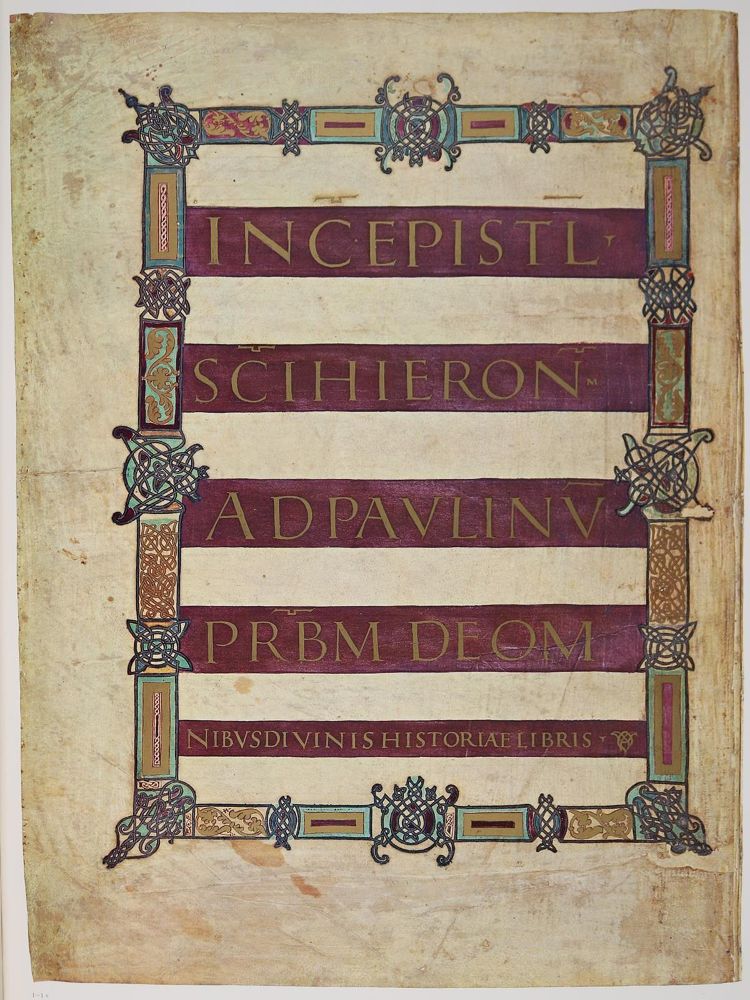 INC EPISTL
SCI HIERONM
AD PAVLINV
PRBM DE OM
NIBVS DIVINIS HISTORIAE LIBRIS